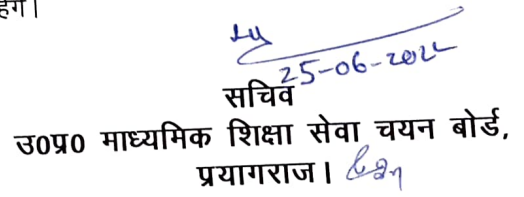 हेंगे।
25-06-2022
सचिव
उ०प्र० माध्यमिक शिक्षा सेवा चयन बोर्ड,
प्रयागराज।